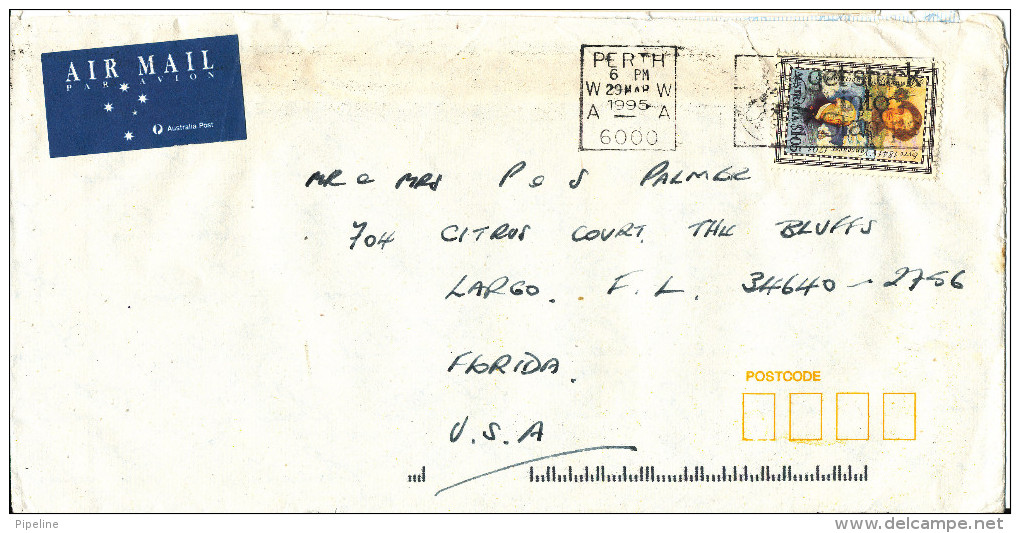 AIR MAIL
PAR AVION
Australia Post
PERTH
6 PM
W 29 MAR W
A 1995 A
6000
get stuck
into
AUSTRALIA $1.05
MR & MRS P & S PALMER
704 CITRUS COURT. THE BLUFFS
LARGO. F.L. 34640-2756
FLORIDA.
U.S.A
POSTCODE
Pipeline
delcampe.net